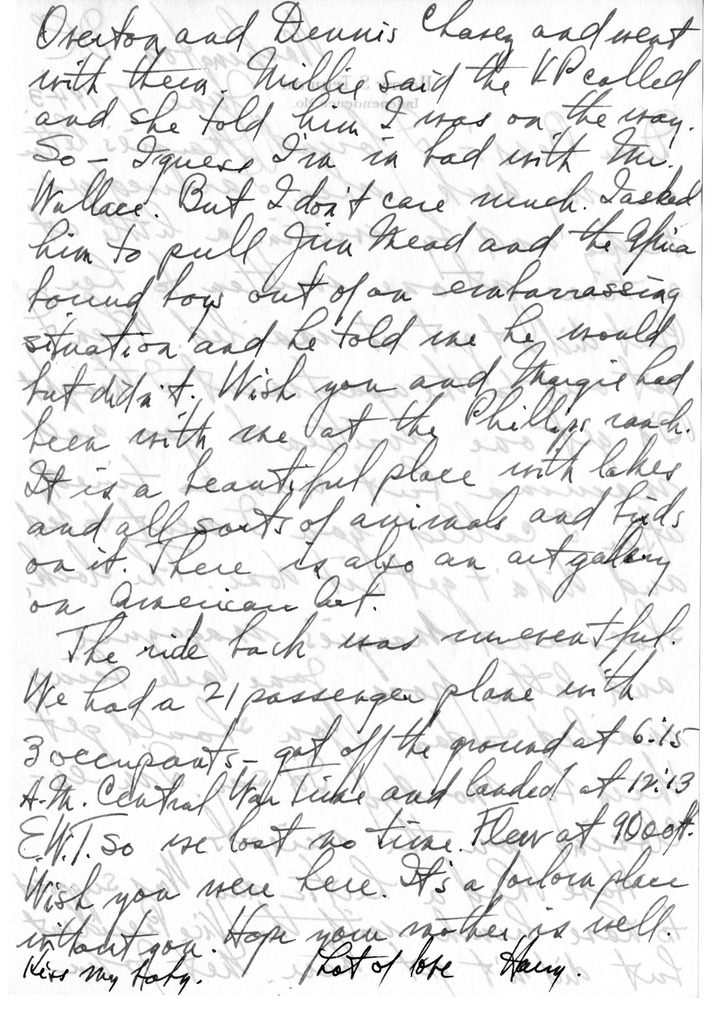 Overton and Dennis Chavez and went
with them. Millie said the V.P. called
and she told him I was on the way.
So – I guess I'm in bad with Mr.
Wallace. But I don't care much. I asked
him to pull Jim Mead and the Africa
bound boys out of an embarrassing
situation and he told me he would
but didn't. Wish you and Margie had
been with me at the Phillips ranch.
It is a beautiful place with lakes
and all sorts of animals and birds
on it. There is also an art gallery
on American Art.
The ride back was uneventful.
We had a 21 passenger plane with
3 occupants – got off the ground at 6:15
A.M. Central War Time and landed at 12:13
E.W.T. so we lost no time. Flew at 9000 ft.
Wish you were here. It's a forlorn place
without you. Hope your mother is well.
Kiss my baby. Lot of love Harry.